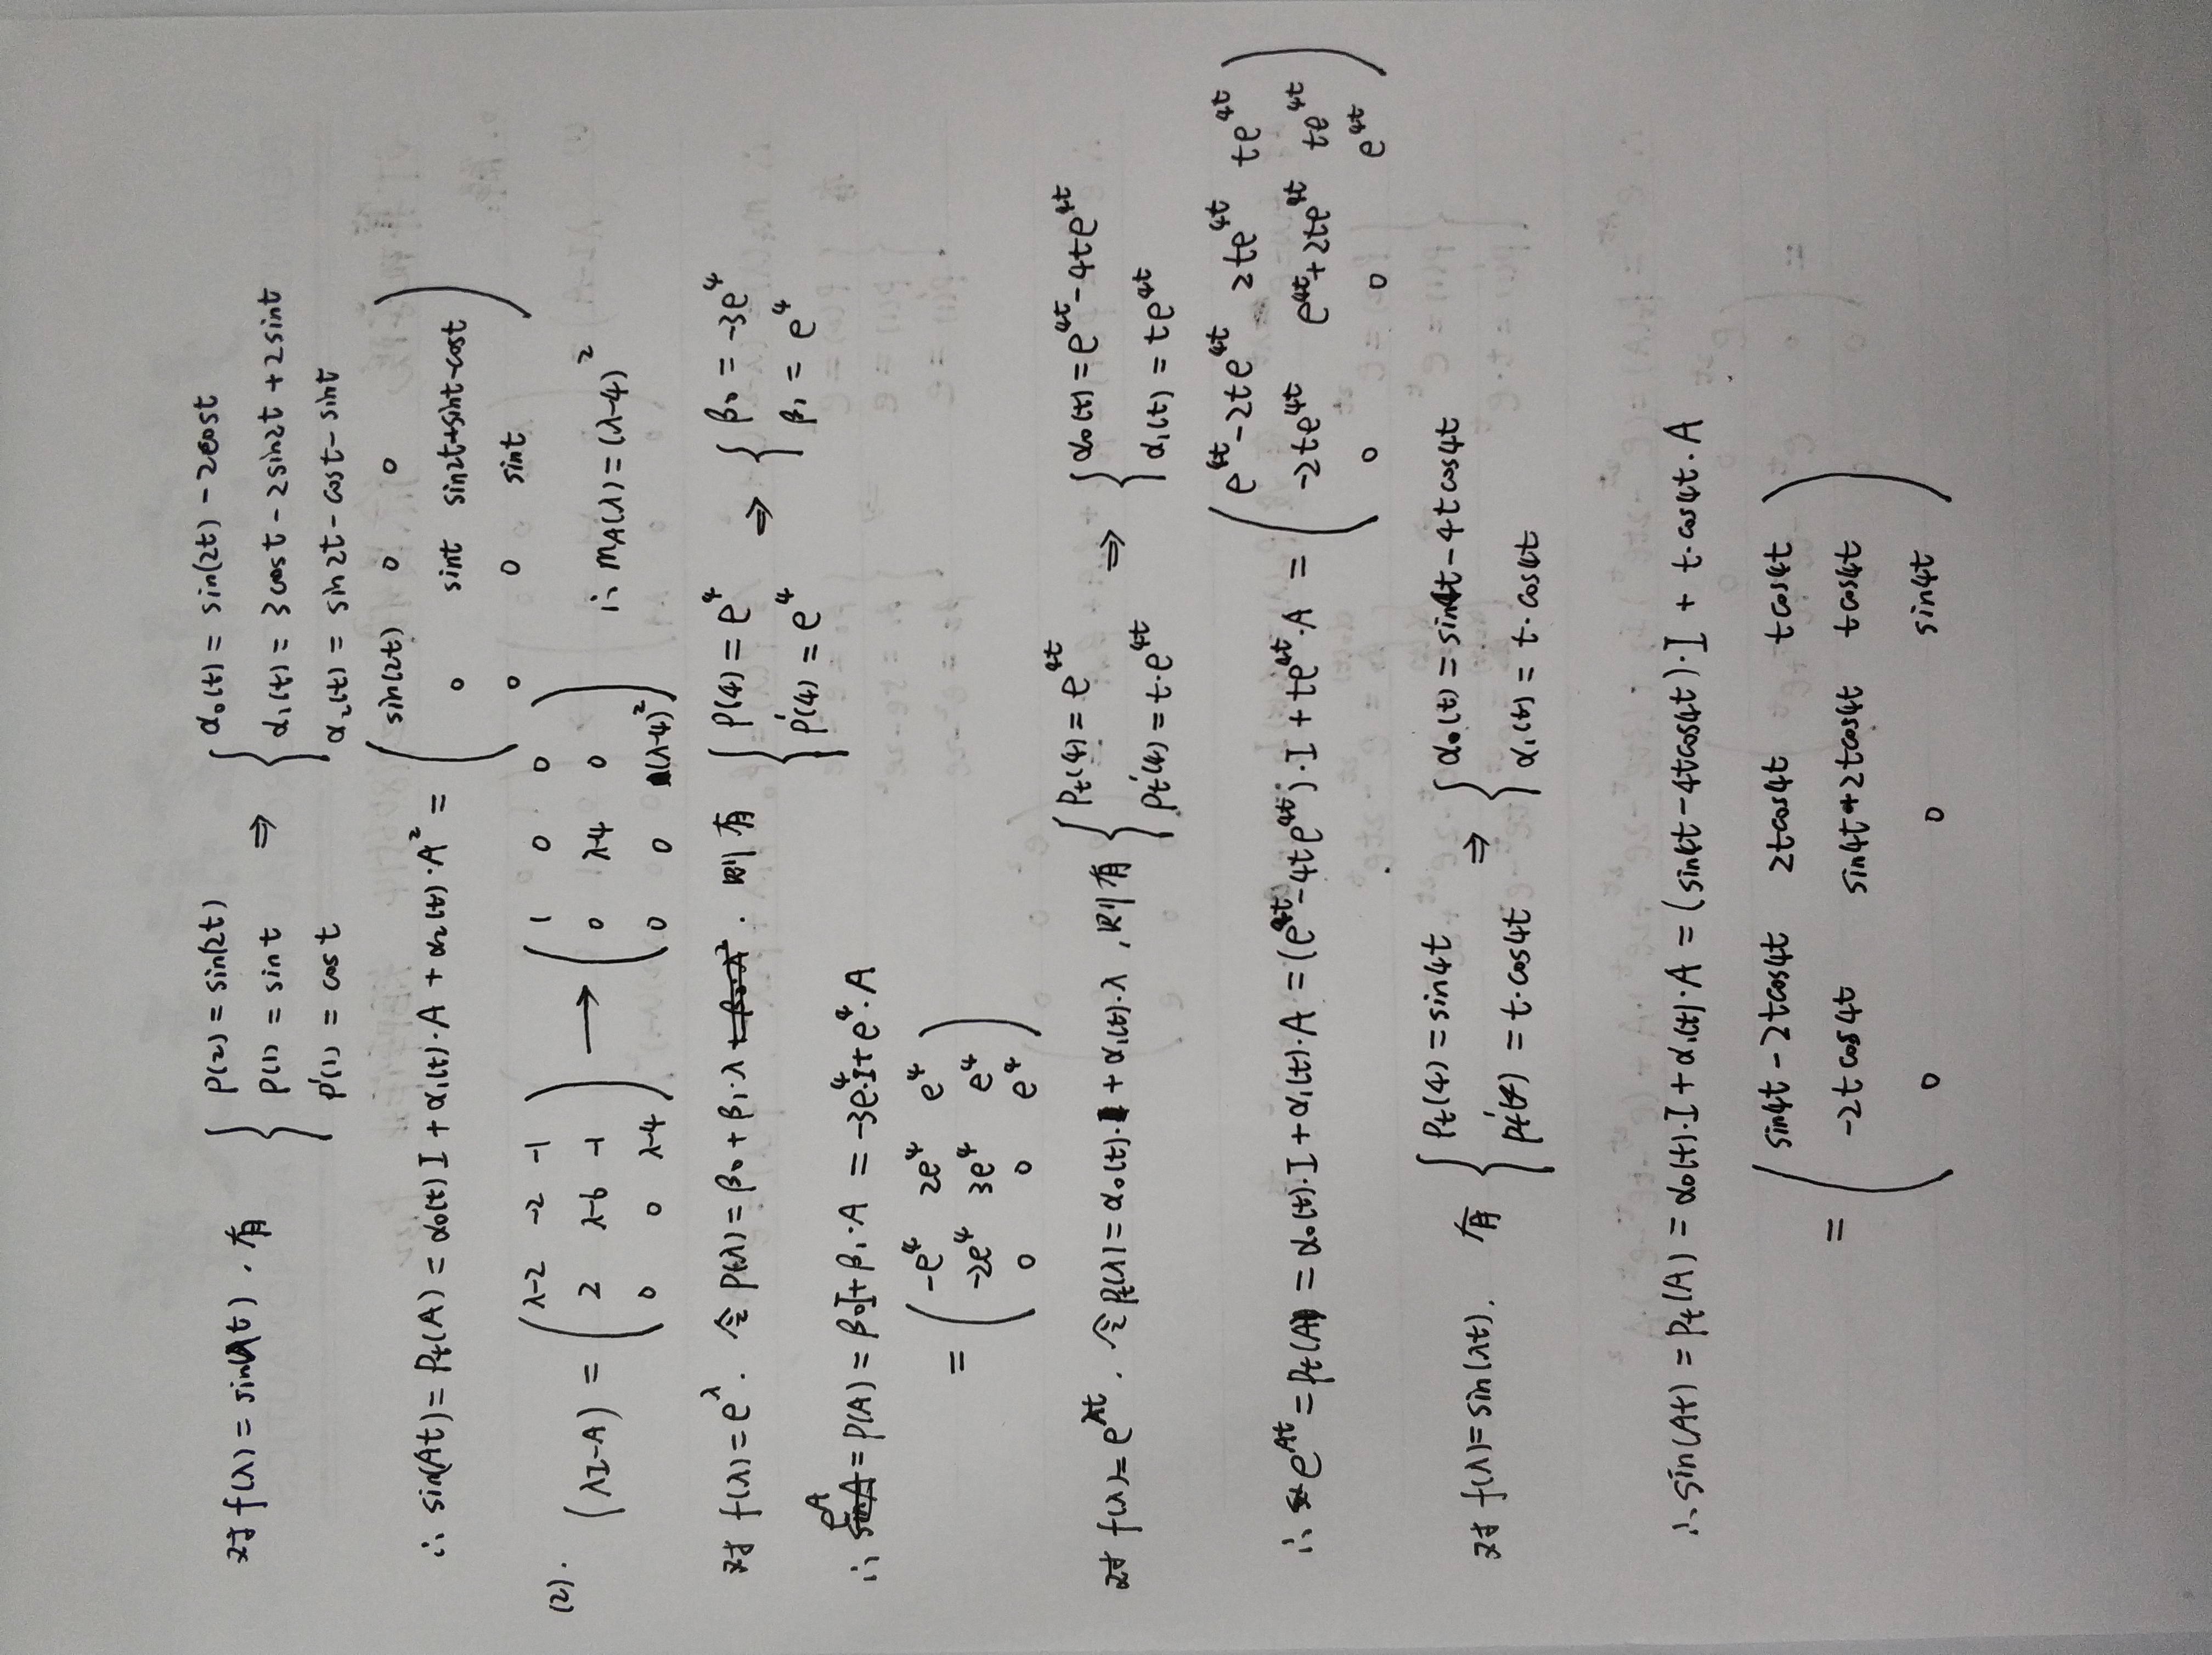 对 f(λ) = sin(λt), 有 { P(2) = sin(2t) P(1) = sin t P'(1) = cos t ⇒ { α₀(t) = sin(2t) - 2cost α₁(t) = 3cost - 2sin2t + 2sint α₂(t) = sin2t - cost - sint
∴ sin(At) = Pt(A) = α₀(t) I + α₁(t)·A + α₂(t)·A² = ( sin(2t) 0 0
0 sint sin2t+sint-cost
0 0 sint )
(2). (λI-A) = ( λ-2 -2 -1
2 λ-6 -1
0 0 λ-4 ) → ( 1 0 0
0 λ-4 0
0 0 (λ-4)² ) ∴ mA(λ) = (λ-4)²
对 f(λ) = e^λ. 令 P(λ) = β₀ + β₁·λ. 则有 { P(4) = e⁴ P'(4) = e⁴ ⇒ { β₀ = -3e⁴ β₁ = e⁴
∴ e^A = P(A) = β₀I + β₁·A = -3e⁴·I + e⁴·A
= ( -e⁴ 2e⁴ e⁴
-2e⁴ 3e⁴ e⁴
0 0 e⁴ )
对 f(λ) = e^λt, 令 Pt(λ) = α₀(t) + α₁(t)·λ, 则有 { Pt(4) = e^4t Pt'(4) = t·e^4t ⇒ { α₀(t) = e^4t - 4te^4t α₁(t) = te^4t
∴ e^At = Pt(A) = α₀(t)·I + α₁(t)·A = (e^4t - 4te^4t)·I + te^4t·A = ( e^4t-2te^4t 2te^4t te^4t
-2te^4t e^4t+2te^4t te^4t
0 0 e^4t )
对 f(λ) = sin(λt). 有 { Pt(4) = sin4t Pt'(4) = t·cos4t ⇒ { α₀(t) = sin4t - 4tcos4t α₁(t) = t·cos4t
∴ sin(At) = Pt(A) = α₀(t)·I + α₁(t)·A = (sin4t - 4tcos4t)·I + t·cos4t·A
= ( sin4t - 2tcos4t 2tcos4t tcos4t
-2tcos4t sin4t+2tcos4t tcos4t
0 0 sin4t )